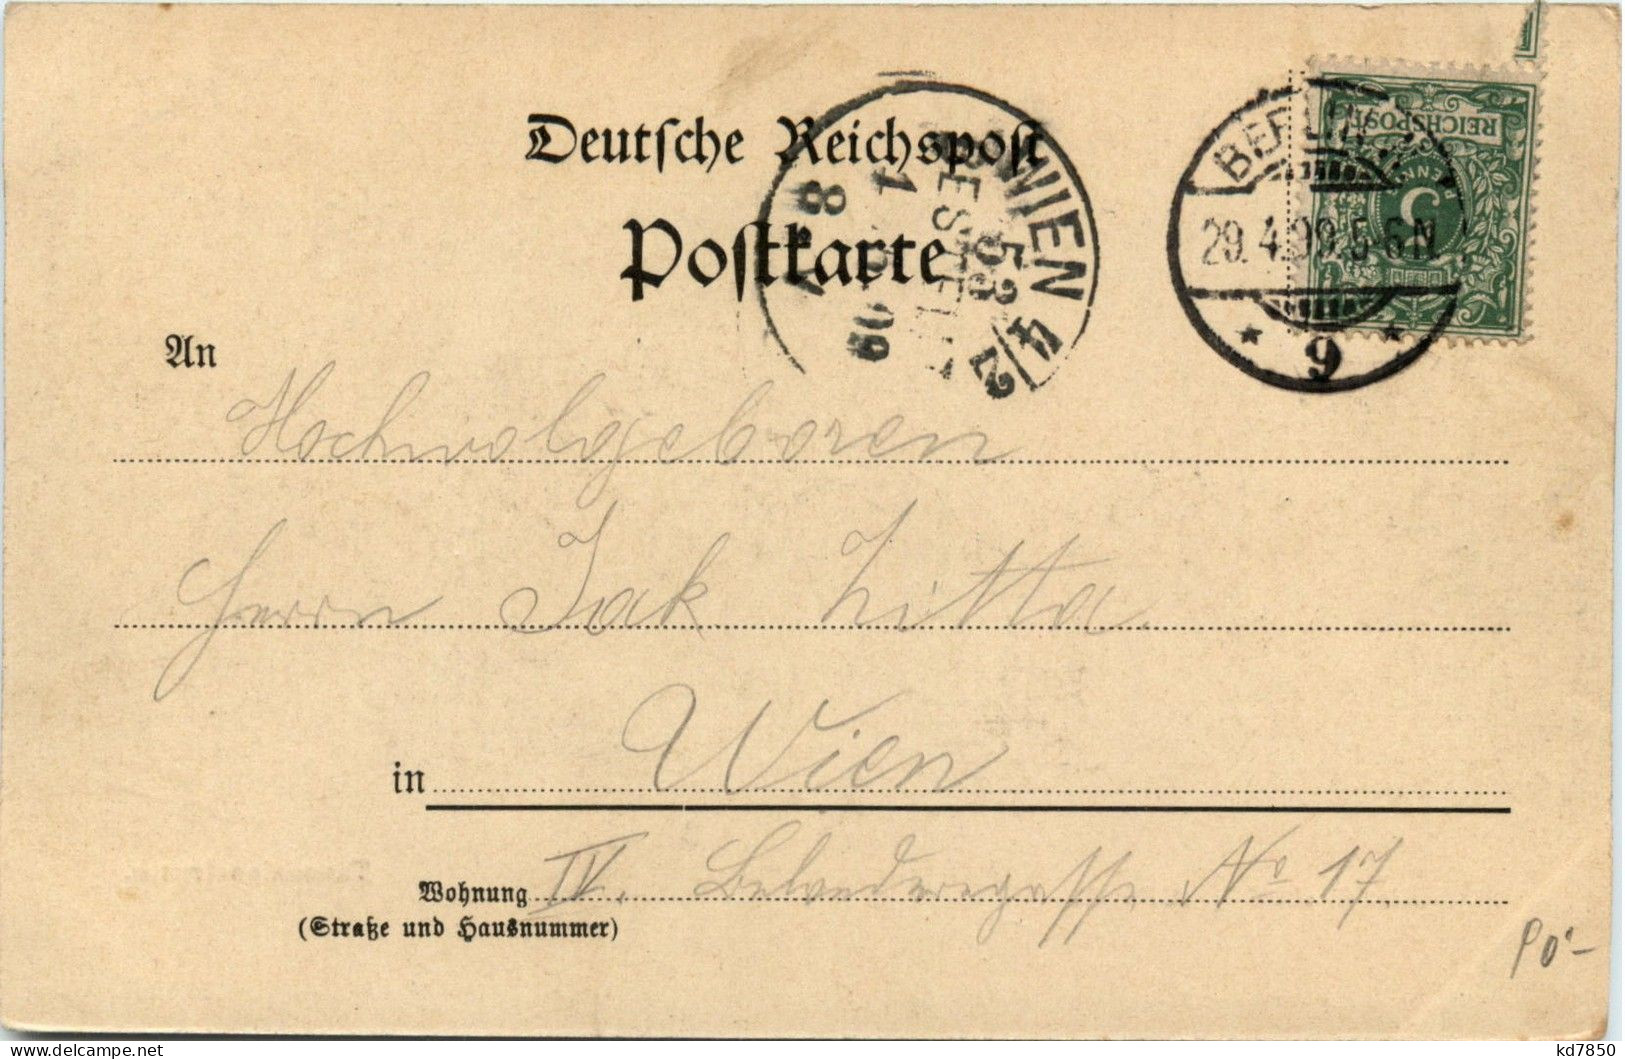 Deutsche Reichspost
Postkarte
WIEN 4/2
53
BESTELLT
8.V
1
99
BERLIN
29.4.99.5-6N.
* 9 *
REICHSPOST
5
PFENNIG
An
Hochwolgeboren
Herrn Jak Zitta
in Wien
Wohnung IV. Belvederegasse No 17
(Straße und Hausnummer)
kd7850